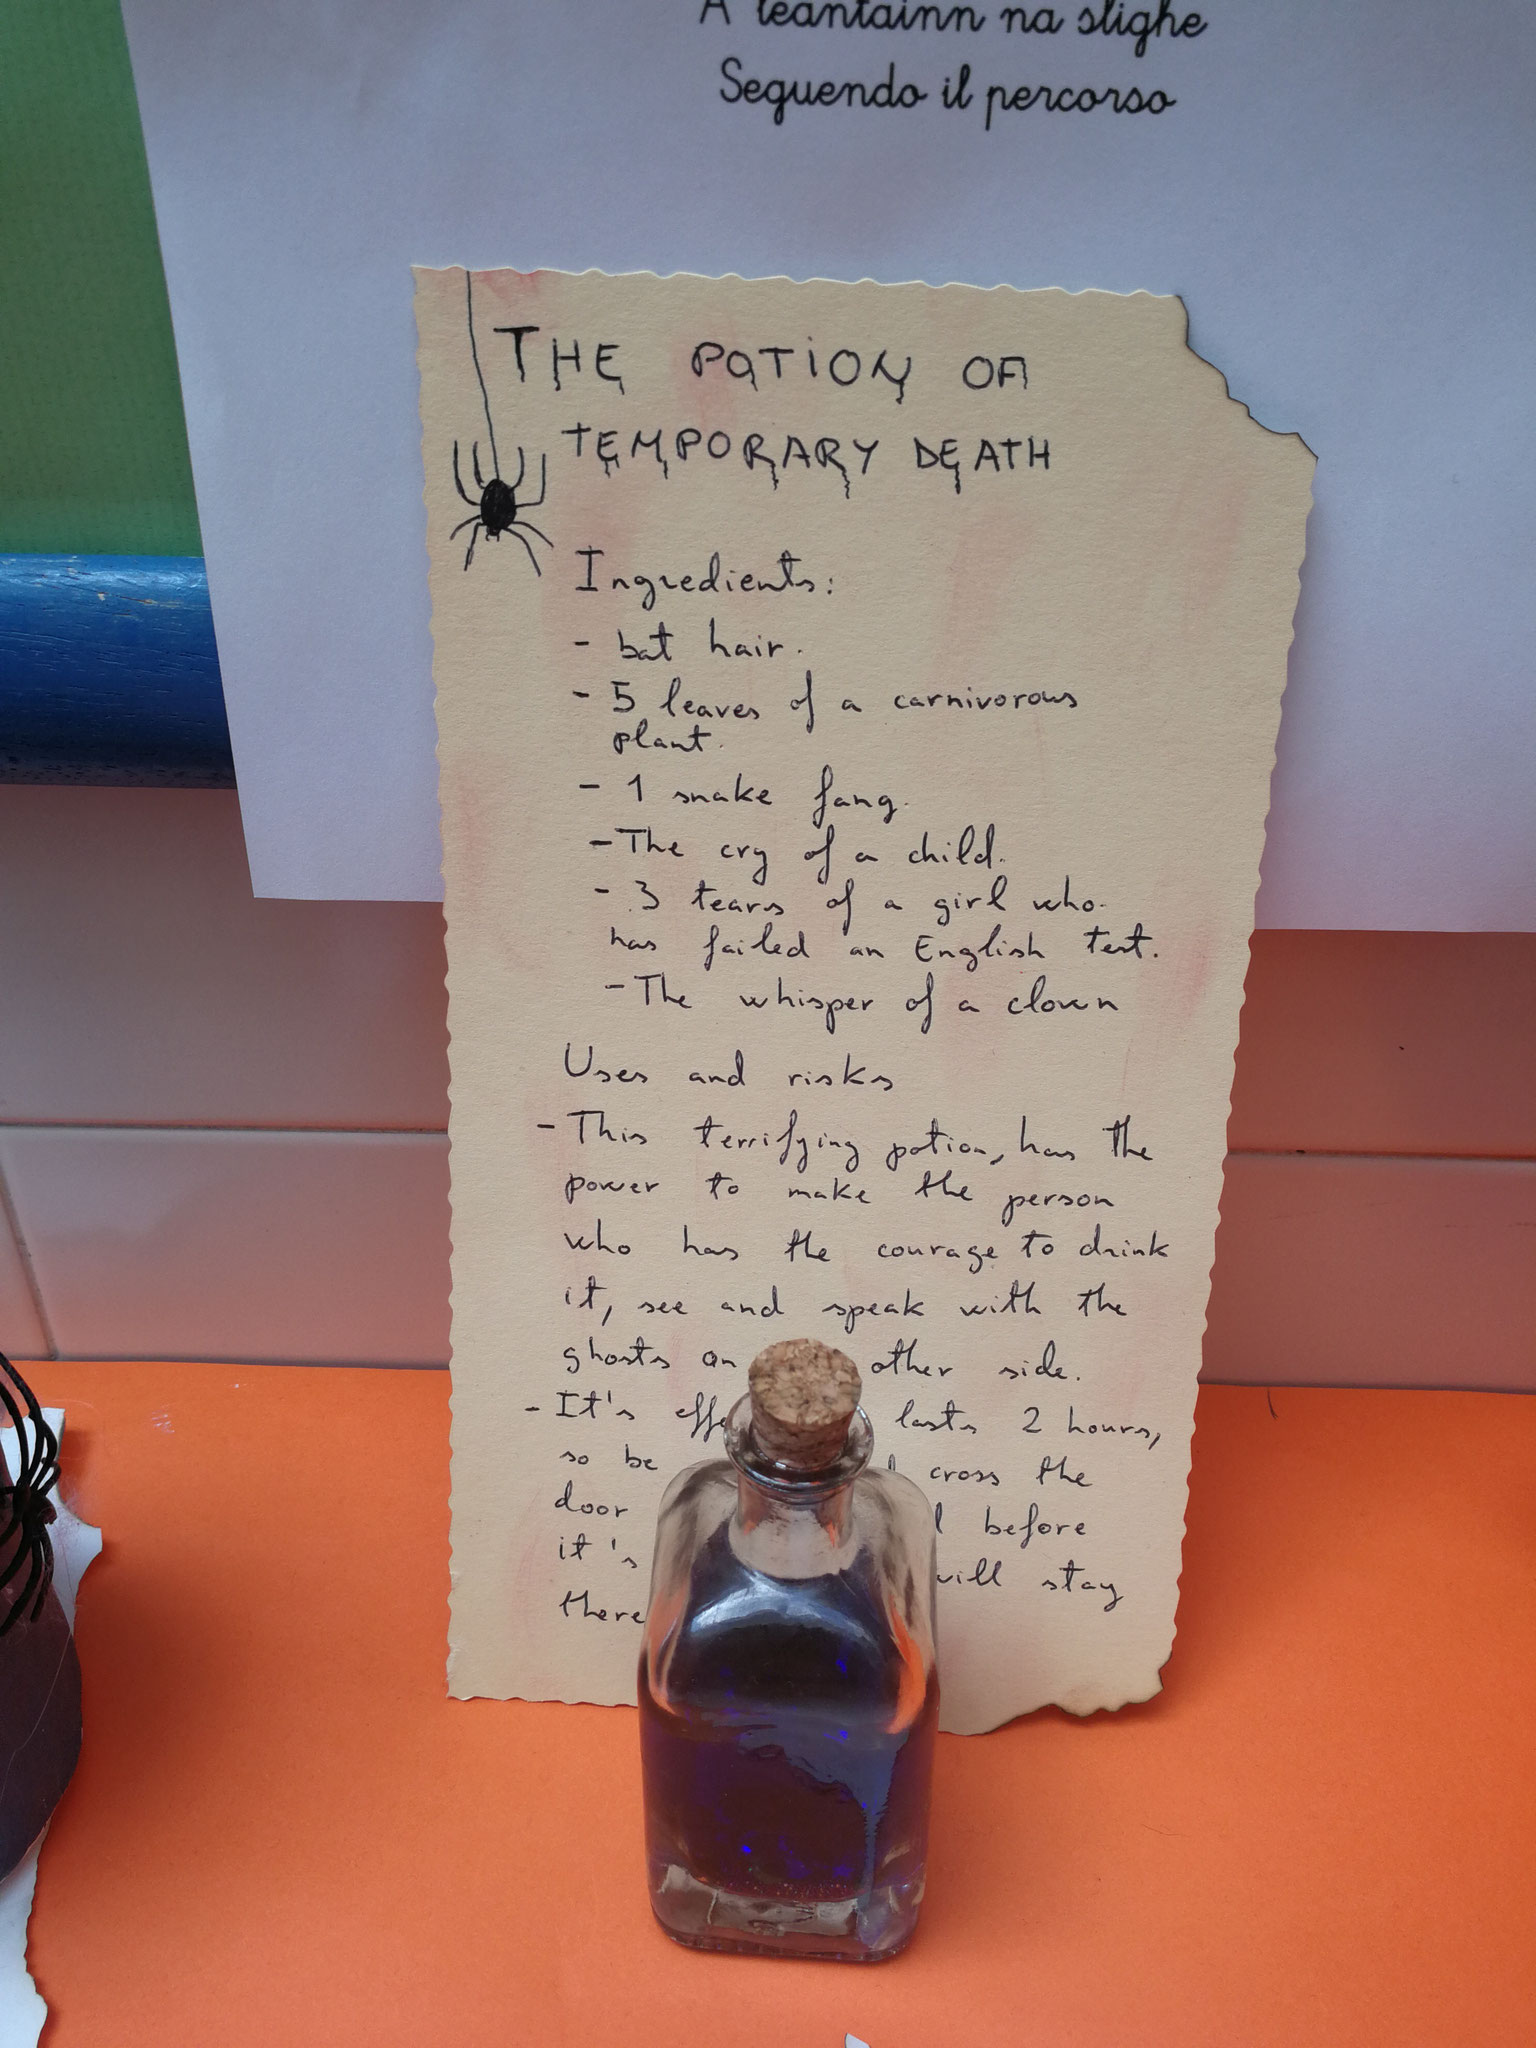 A leantainn na slighe
Seguendo il percorso
THE POTION OF
TEMPORARY DEATH
Ingredients:
- bat hair.
- 5 leaves of a carnivorous
plant.
- 1 snake fang.
- The cry of a child.
- 3 tears of a girl who
has failed an English test.
- The whisper of a clown
Uses and risks
- This terrifying potion, has the
power to make the person
who has the courage to drink
it, see and speak with the
ghosts on other side.
- It's lasts 2 hours,
so be cross the
door before
it's will stay
there